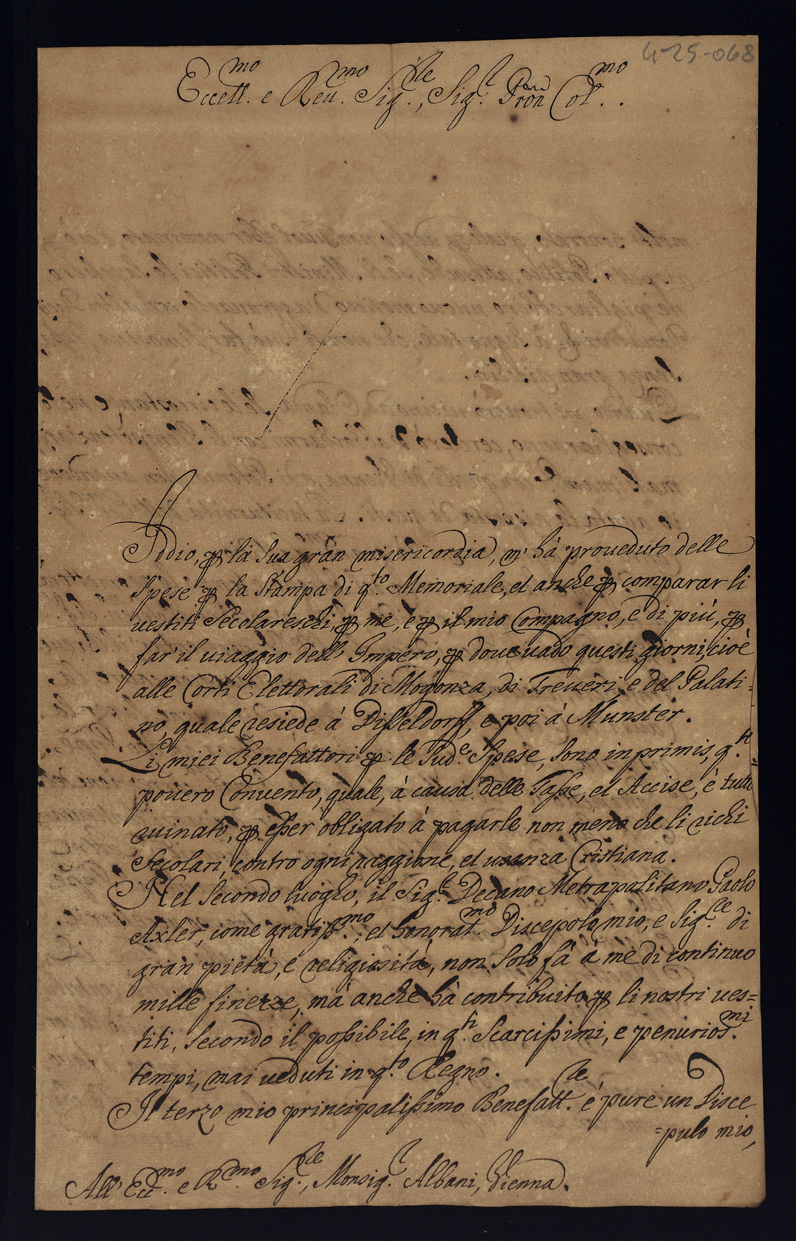 4-25-068
Eccell.mo e Reu.mo Sig.re, Sig.r Pron Col.mo.
Iddio, ꝑ la sua gran misericordia, m' há proueduto delle
spese ꝑ la stampa di q.to Memoriale, et anche ꝑ comparar li
uestiti secolareschi, ꝑ me, e ꝑ il mio Compagno, e di piú, ꝑ
far' il uiaggio dell' Impero, ꝑ doue uado questi giorni, cioé
alle Corti Elettorali di Mogonza, di Treueri, e del Palati-
no, quale resiede á Disseldorff, e poi á Munster.
Li miei Benefattori ꝑ le sud.e spese, sono in primis, q.sti
pouero Conuento, quale, á causa delle Tasse, et Accise, é tutto
ruinato, ꝑ esser obligato á pagarle non meno che li richi
secolari, contro ogni raggione, et usanza Cristiana.
Nel secondo luogho, il Sig.r Decano Metrapolitano Paolo
Axler, come gratiss.mo, et honorat.mo Discepolo mio, e Sig.re di
gran pietá, e religiositá, non solo fá á me di continuo
mille finezze, má anche há contribuito ꝑ li nostri ues=
titi, secondo il possibile, in q.ti scarcissimi, e penurios.mi
tempi, mai ueduti in q.to Regno.
Il terzo mio principalissimo Benefatt.re é pure un Disce
=pulo mio,
All' Ecc.mo e R.mo Sig.re, Monsig.r Albani, Vienna.